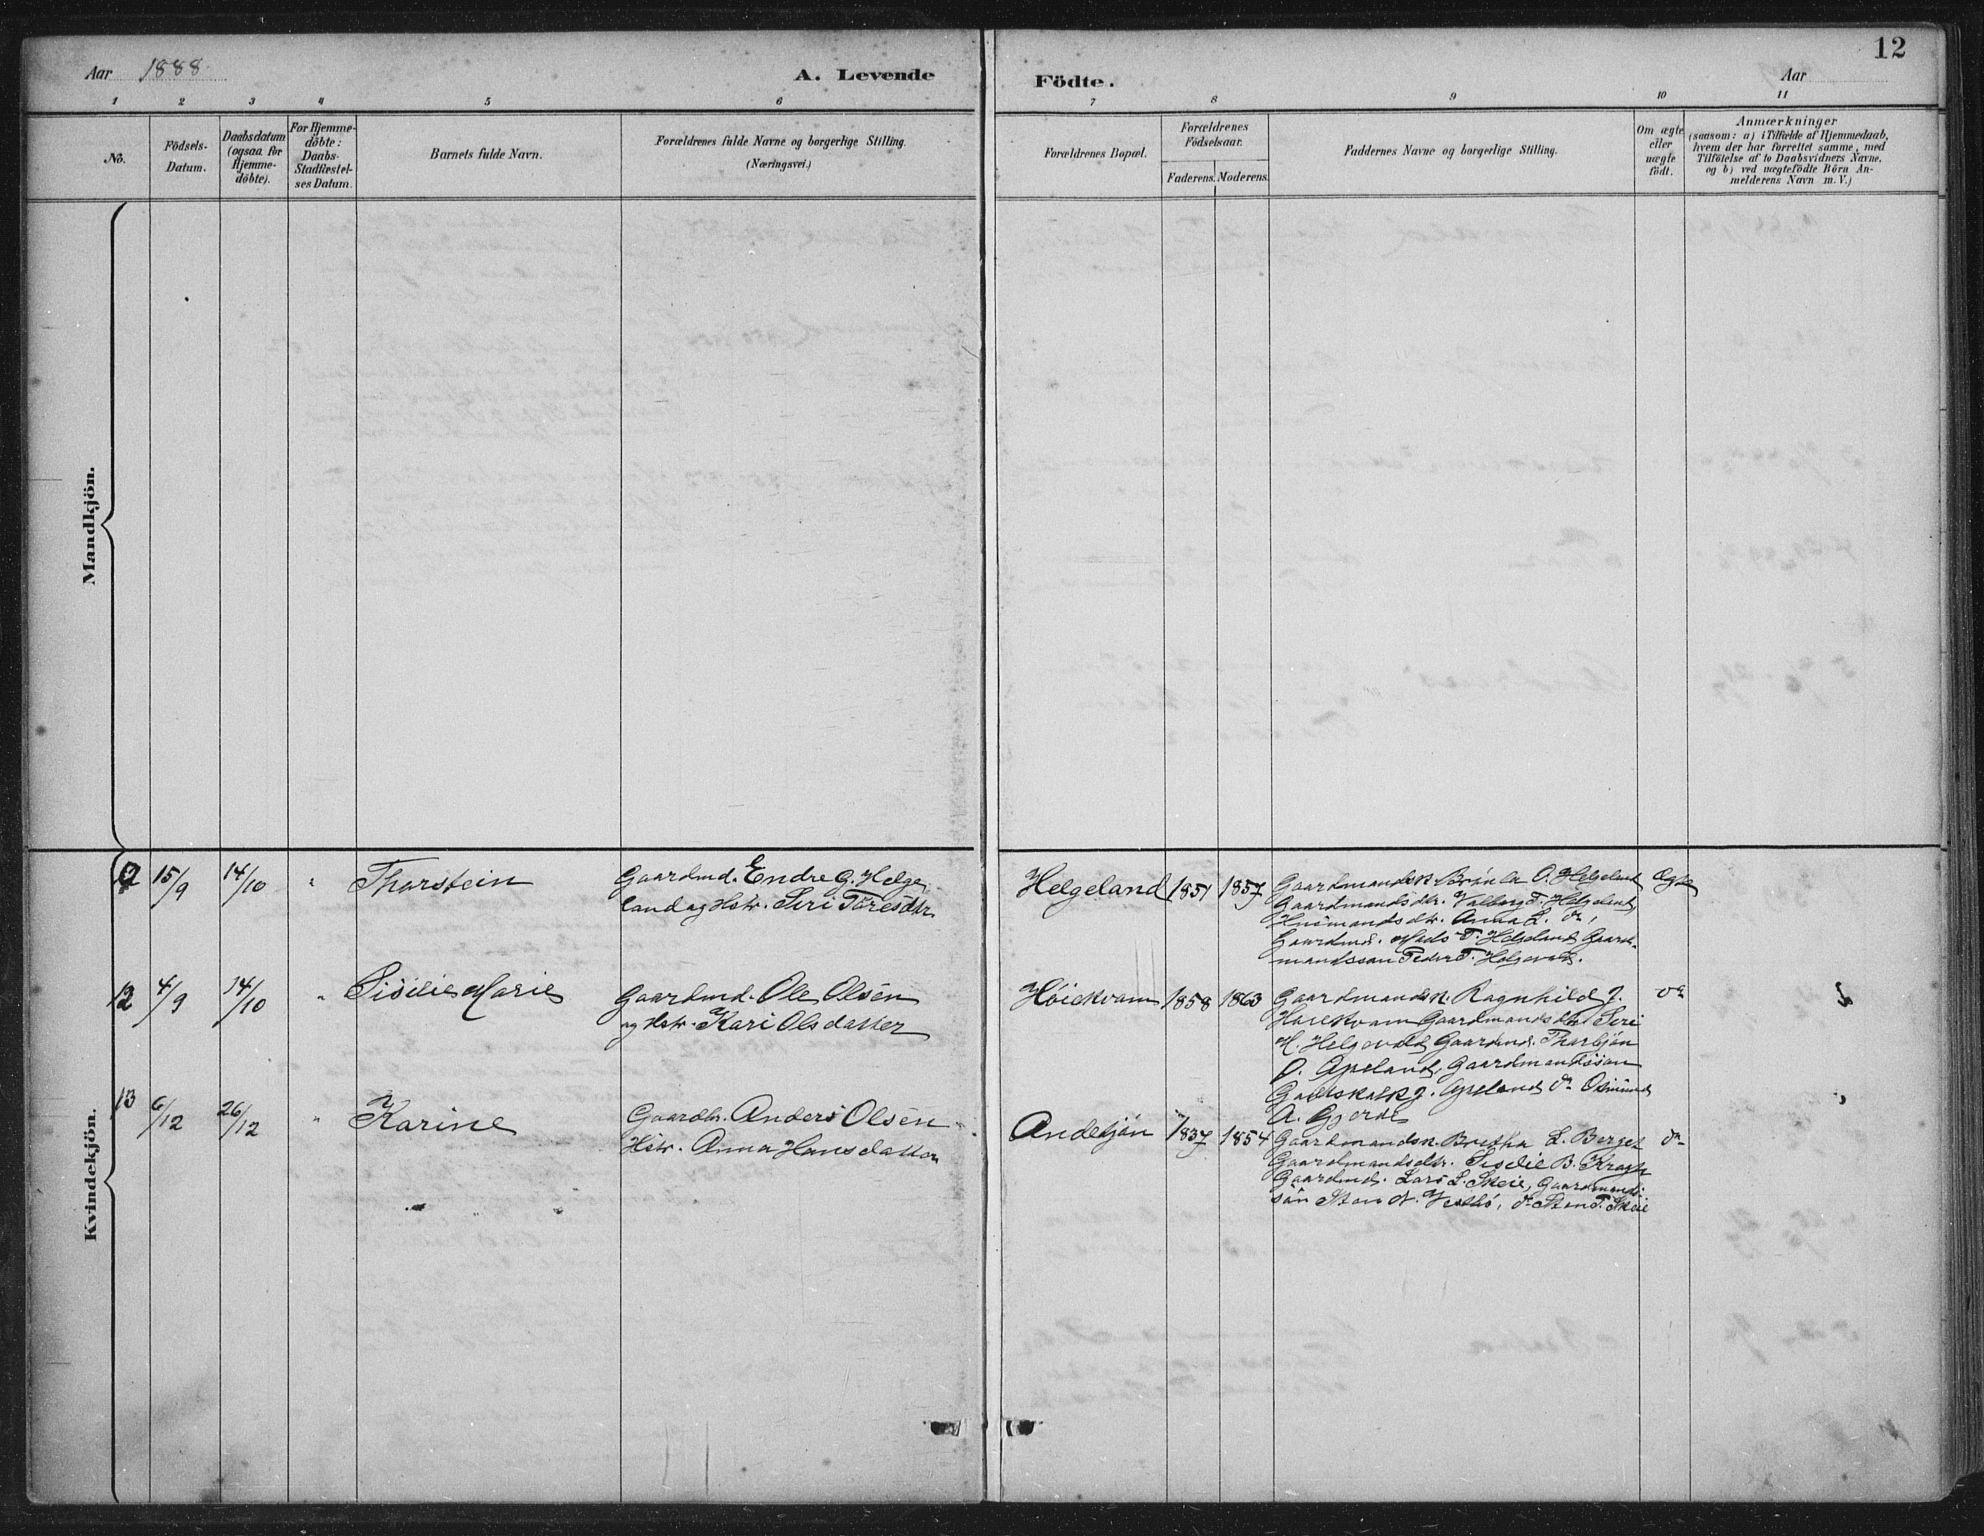 Aar 1888
A. Levende
Födte.
Aar
12
1 2 3 4 5 6 7 8 9 10 11
No.
Födsels-
Datum.
Daabsdatum
(ogsaa for
Hjemme-
döbte).
For Hjemme-
döbte:
Daabs-
Stadfæstel-
ses Datum.
Barnets fulde Navn.
Forældrenes fulde Navne og borgerlige Stilling.
(Næringsvei.)
Forældrenes Bopæl.
Forældrenes
Födselsaar.
Faderens. Moderens.
Faddernes Navne og borgerlige Stilling.
Om ægte
eller
uægte
födt.
Anmærkninger
(saasom: a) i Tilfælde af Hjemmedaab,
hvem der har forrettet samme, med
Tilföielse af to Daabsvidners Navne,
og b) ved uægtefödte Börn An-
melderens Navn m. V.)
Mandkjön.
Kvindekjön.
15/9 14/10 " Thorstein
Gaardmd. Endre G. Helge
land og Hstr. Siri Töresdtr.
Helgeland 1851 1857
Gaardmandsk. O. Helgeland
Gaardmandsdtr. Valborg T. Helgeland,
Husmandsdtr. Anna L. do,
Gaardmd. Mads T. Helgeland Gaard-
mandssön Peder T. Helgevold.
Ægte
12 4/9 14/10 " Siselie Marie
Gaardmd. Ole Olsen
og Hstr. Kari Olsdatter
Höiekvam 1858 1863
Gaardmandsk. Ragnhild J.
Gaardmandsdtr Siri
H. Helgevold, Gaardmd. Thorbjön
O. Apeland, Gaardmandssön
J. Apeland do Osmund
A. Gjerde
do
13 6/12 26/12 " Karine
Anders Olsen
Hstr. Anna Hansdatter
1837 1854
Gaardmandsk. Bertha L. Berget
Gaardmandsdtr. Siselie B.
Gaardmd. Lars L. Skeie, Gaardmands-
sön Sten N. do Sten T. Skeie
do